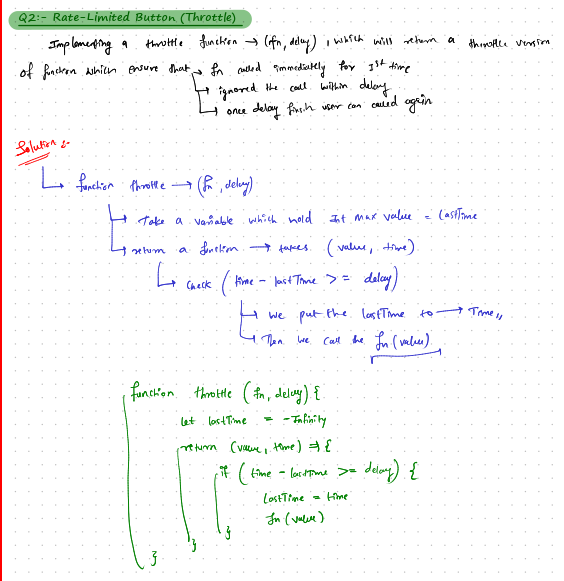 Q2:- Rate-Limited Button (Throttle)
Implementing a throttle function → (fn, delay), which will return a throttle version
of function which ensure that → fn called immediately for 1st time
→ ignored the call within delay
→ once delay finish user can called again
Solution :-
→ function throttle → (fn, delay)
→ Take a variable which hold Int max value = lastTime
→ return a function → takes (value, time)
→ check (time - lastTime >= delay)
→ we put the lastTime to → Time,,
→ Then we call the fn(value)
function throttle (fn, delay) {
let lastTime = -Infinity
return (value, time) => {
if (time - lastTime >= delay) {
lastTime = time
fn(value)
}
}
}